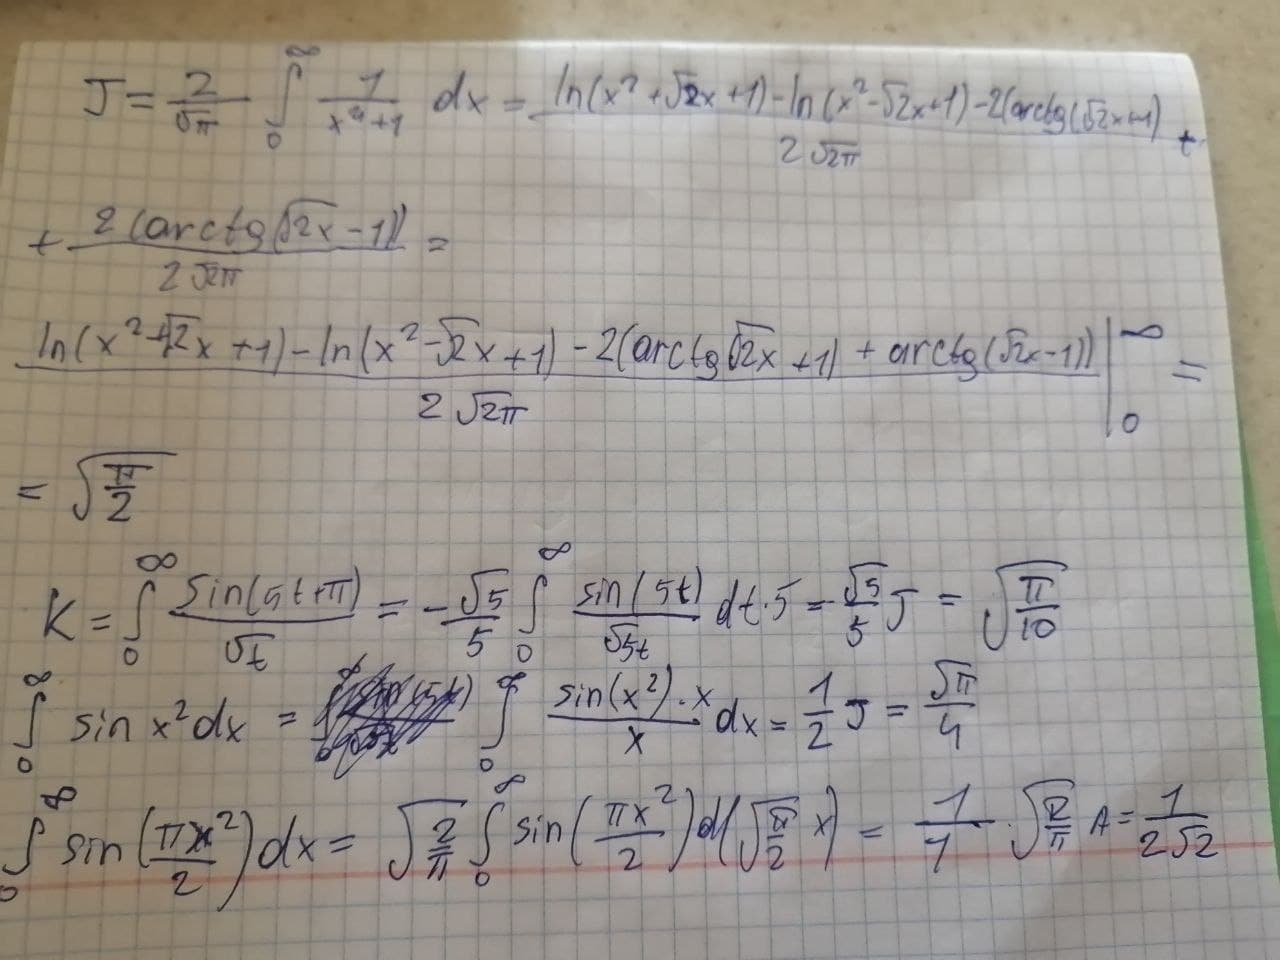 J = 2/√π ∫₀^∞ 1/(x⁴+1) dx = (ln(x²+√2x+1)-ln(x²-√2x+1)-2(arctg(√2x+1))/(2√2π) +
+ 2(arctg(√2x-1))/(2√2π) =
(ln(x²+√2x+1)-ln(x²-√2x+1)-2(arctg√2x+1)+arctg(√2x-1)))/(2√2π) |₀^∞ =
= √(π/2)
K = ∫₀^∞ sin(5t+π)/√t = -√5/5 ∫₀^∞ sin(5t)/√5t dt·5 = -√5/5 J = √(π/10)
∫₀^∞ sin x² dx = ∫₀^∞ sin(x²)·x/x dx = 1/2 J = √π/4
∫₀^∞ sin(πx²/2) dx = √(2/π) ∫₀^∞ sin(πx²/2) d(√(π/2) x) = 1/1 · √(2/π) A = 1/(2√2)